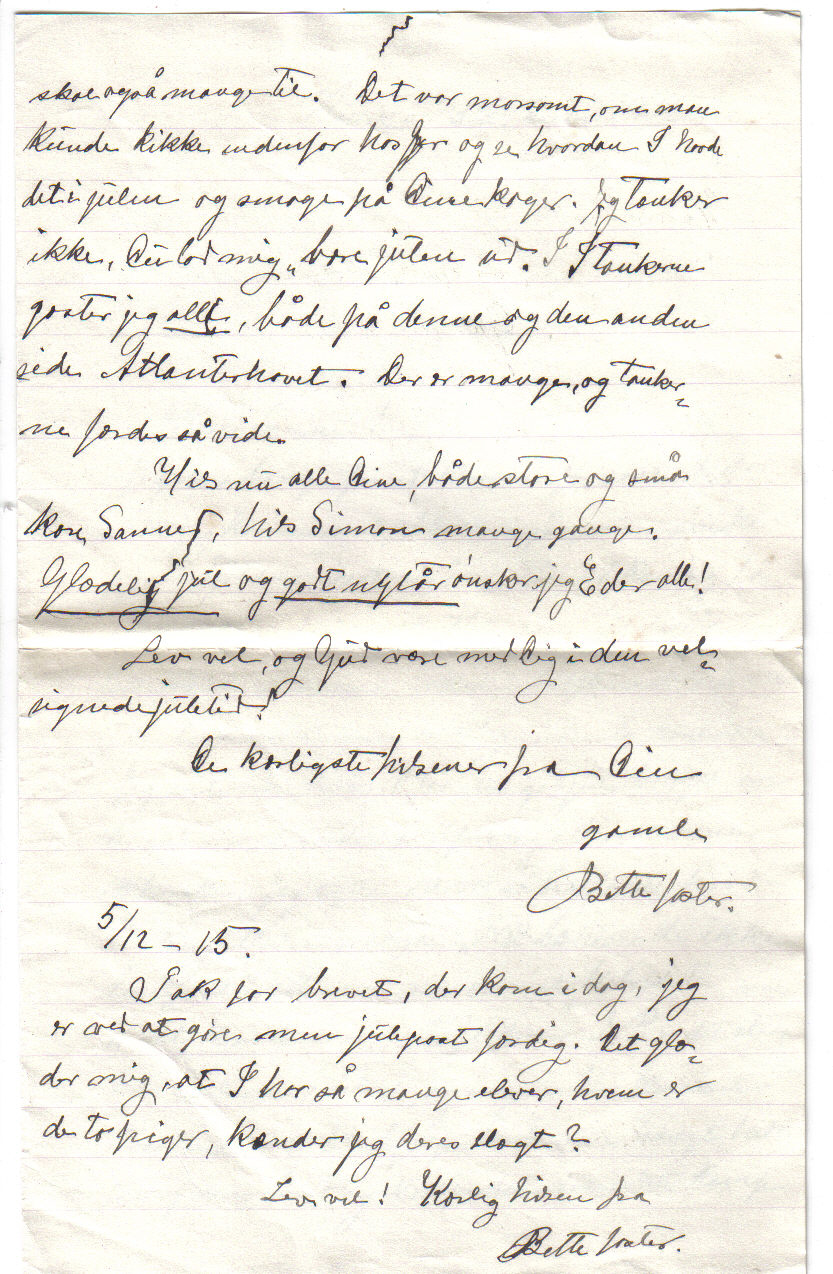 skal også mange til. Det var morsomt, om man
kunde kikke indenfor hos Jer og se hvordan I havde
det i julen og smage på Dine kager. Jeg tænker
ikke, Du lod mig „bære julen ud. I Tankerne
gæster jeg alle, både på denne og den anden
side Atlanterhavet. Der er mange, og tanker-
ne færdes så vide.
Hils nu alle Dine, både store og små
kære Sanne, hils Simon mange gange.
Glædelig jul og godt nytår ønsker jeg Eder alle!
Lev vel, og Gud være med Dig i den vel-
signede juletid!
De kærligste hilsener fra Din
gamle
Bette faster.
5/12 – 15.
Tak for brevet, der kom i dag, jeg
er ved at gøre min julepost færdig. Det glæ-
der mig, at I har så mange elever, hvem er
de to piger, kender jeg deres slægt?
Lev vel! Kærlig hilsen fra
Bette faster.